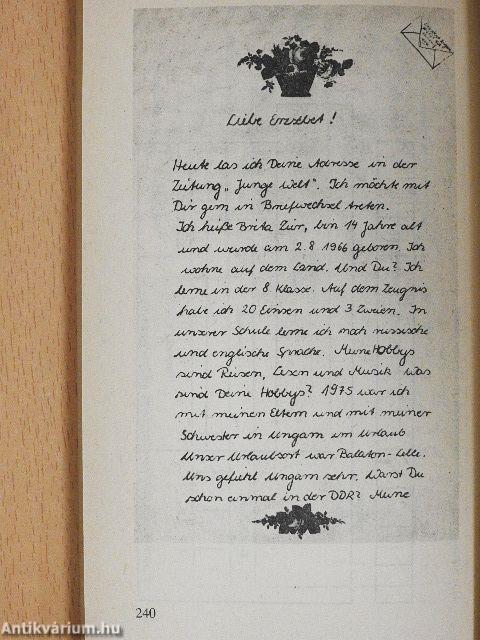 Liebe Erzsébet!
Heute las ich Deine Adresse in der
Zeitung „Junge Welt". Ich möchte mit
Dir gern in Briefwechsel treten.
Ich heiße Brita Zier, bin 14 Jahre alt
und wurde am 2.8.1966 geboren. Ich
wohne auf dem Land. Und Du? Ich
lerne in der 8. Klasse. Auf dem Zeugnis
habe ich 20 Einsen und 3 Zweien. In
unserer Schule lerne ich noch russische
und englische Sprache. Meine Hobbys
sind Reisen, Lesen und Musik. Was
sind Deine Hobbys? 1975 war ich
mit meinen Eltern und mit meiner
Schwester in Ungarn im Urlaub
Unser Urlaubsort war Balaton-Lelle.
Uns gefiehl Ungarn sehr. Warst Du
schon einmal in der DDR? Meine
240
Antikvárium.hu